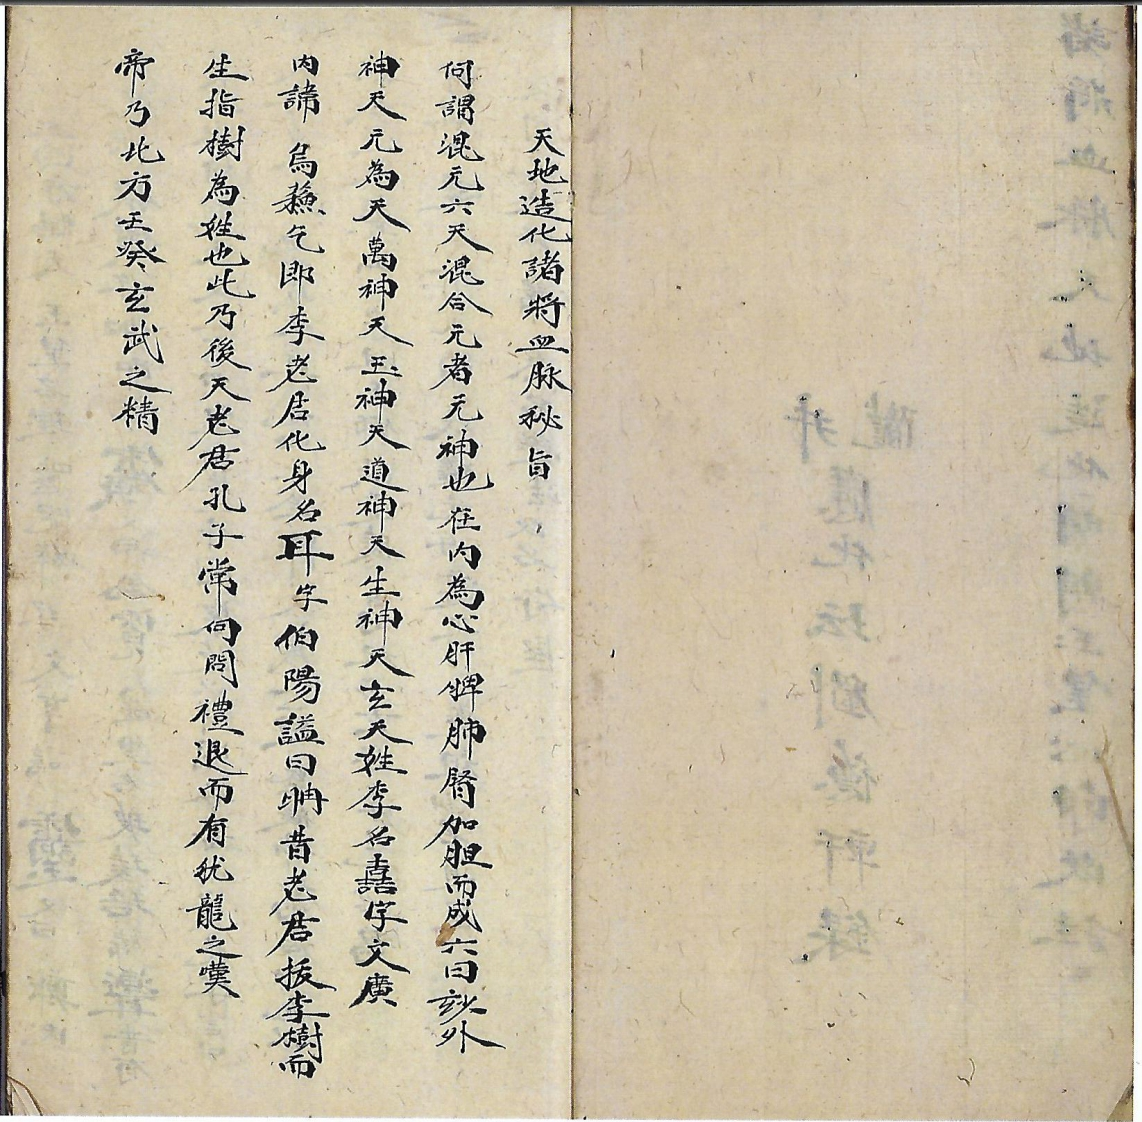 天地造化諸將血脉秘旨
何謂混元六天混合元者元神也在内為心肝脾肺腎加胆而成六曰玅外
神天元為天萬神天玉神天道神天生神天玄天姓李名嚞字文廣
内諱烏𥡆气即李老君化身名耳字伯陽謚曰聃昔老君扳李樹而
生指樹為姓也此乃後天老君孔子常向問禮退而有犹龍之嘆
帝乃北方壬癸玄武之精